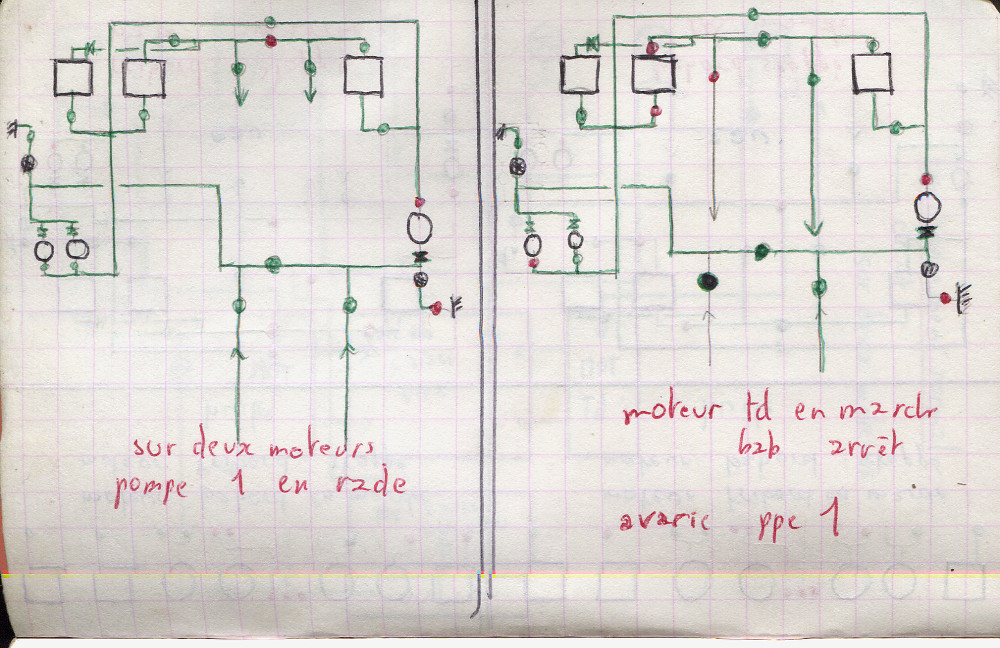 sur deux moteurs
pompe 1 en rade
moteur td en march
bab arrêt
avarie ppe 1